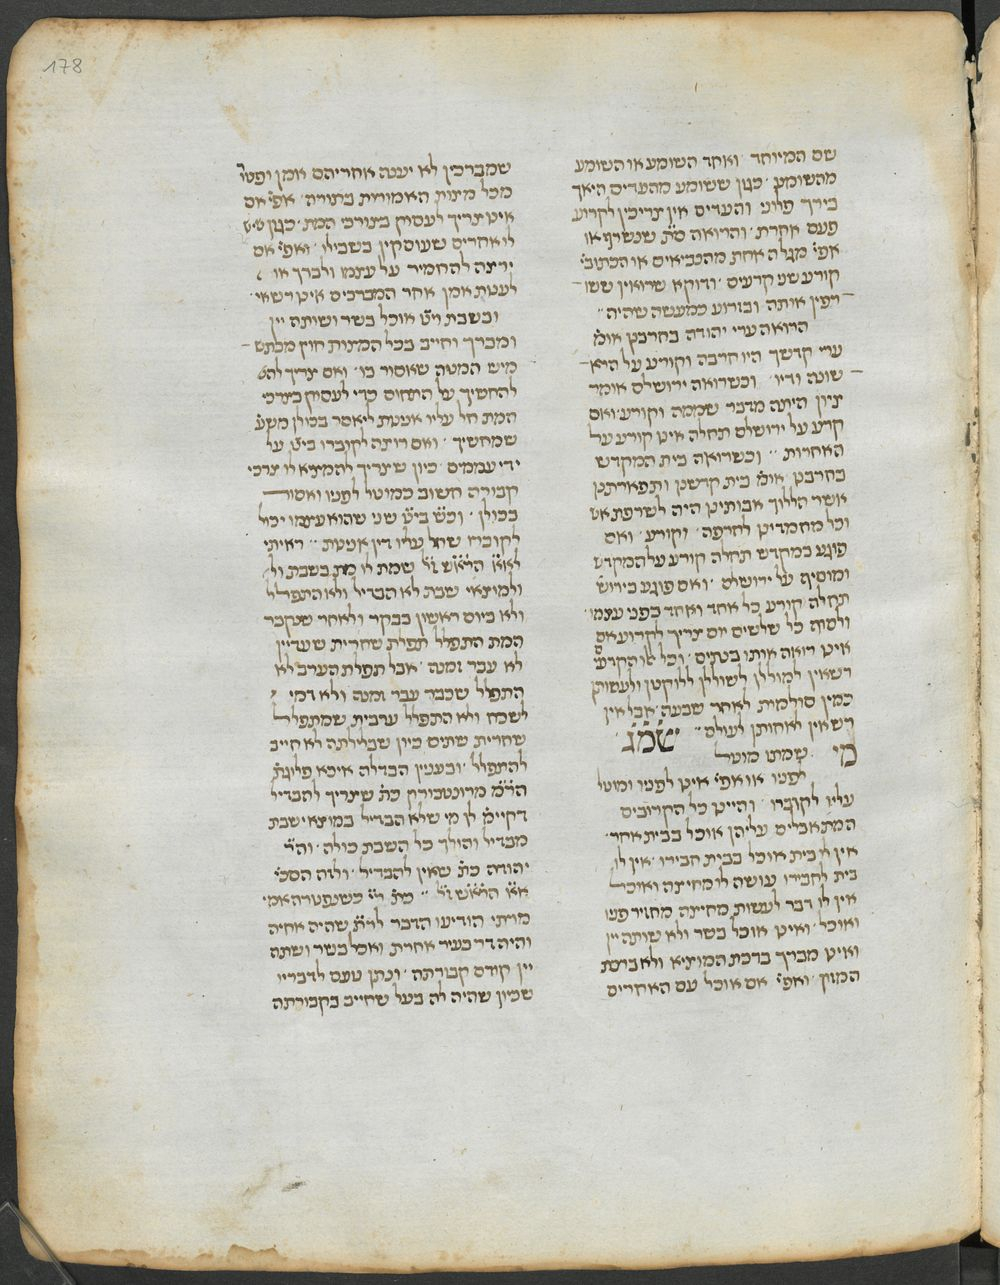 178
שם המיוחד ואחד השומע או השומע
מהשומע כגון ששומע מהעדים היאך
בירך פלוני והעדים אין צריכין לקרוע
פעם אחרת והרואה ס״ת שנשרף או
אפי׳ מגלה אחת מהנביאים או הכתובי׳
קורע שני קרעים ודוקא שרואין ששו
רפין אותה ובזרוע כמעשה שהיה
הרואה ערי יהודה בחרבנן אומ׳
ערי קדשך היו חרבה וקורע על היא
שונה ודיו וכשרואה ירושלם אומר
ציון היתה מדבר שממה וקורע ואם
קרע על ירושלם תחלה אינו קורע על
האחרות וכשרואה בית המקדש
בחרבנו אומ׳ בית קדשנו ותפארתנו
אשר הללוך אבותינו היה לשרפת אש
וכל מחמדינו לחרפה וקורע ואם
פוגע במקדש תחלה קורע על המקדש
ומוסיף על ירושלם ואם פוגע בירוש׳
תחלה קורע כל אחד ואחד בפני עצמו
ולסוף כל שלשים יום צריך לקרוע אם
אינו רואה אותו בנתים וכל אלו הקרעי׳
רשאין למוללן לשוללן ללוקטן ולעשותן
כמין סולמות לאחר שבעה אבל אין
רשאין לאחותן לעולם שמ״ג
מי שמתו מוטל
לפניו או אפי׳ אינו לפניו ומוטל
עליו לקוברו והיינו כל הקרובים
המתאבלים עליהן אוכל בבית אחר
אין לו בית אוכל בבית חבירו אין לו
בית לחבירו עושה לו מחיצה ואוכל
אין לו דבר לעשות מחיצה מחזיר פניו
ואוכל ואינו אוכל בשר ולא שותה יין
ואינו מברך ברכת המוציא ולא ברכת
המזון ואפי׳ אם אוכל עם האחרים
שמברכין לא יענה אחריהם אמן ופטור
מכל מצות האמורות בתורה אפי׳ אם
אינו צריך לעסוק בצורכי המת כגון שיש
לו אחרים שעוסקין בשבילו ואפי׳ אם
ירצה להחמיר על עצמו ולברך או
לענות אמן אחר המברכים אינו רשאי
ובשבת וי״ט אוכל בשר ושותה יין
ומברך וחייב בכל המצות חוץ מתש
מיש המטה שאסור בו ואם צריך לה
להחשיך על התחום כדי לעסוק בצרכי
המת חל עליו אנינות ליאסר בכולן משע׳
שמחשיך ואם רוצה לקוברו בי״ט על
ידי עממים כיון שצריך להמציא לו צרכי
קבורה חשוב כמוטל לפניו ואסור
בכולן וכ״ש בי״ט שני שהוא עצמו יכול
לקוברו שחל עליו דין אנינות ראיתי
לא״א הרא״ש ז״ל שמת לו מת בשבת ול
ולמוצאי שבת לא הבדיל ולא התפלל
ולא ביום ראשון בבקר ולאחר שנקבר
המת התפלל תפלת שחרית שעדיין
לא עבר זמנה אבל תפלת הערב לא
התפלל שכבר עבר זמנה ולא דמי
לשכח ולא התפלל ערבית שמתפלל
שחרית שתים כיון שבלילה לא חייב
להתפלל ובענין הבדלה איכא פלוגת׳
הר״מ מרוטנבורק כת׳ שצריך להבדיל
דקיימ׳ לן מי שלא הבדיל במוצאי שבת
מבדיל והולך כל השבת כולה וה״ר
יהודה כת׳ שאין להבדיל ולזה הסכי׳
א״א הרא״ש ז״ל כת׳ ר״י כשנפטרה אמי
מרתי הודיעו הדבר לר״ת שהיה אחיה
והיה דר בעיר אחרת ואכל בשר ושתה
יין קודם קבורתה ונתן טעם לדבריו
שכיון שהיה לה בעל שחייב בקבורתה